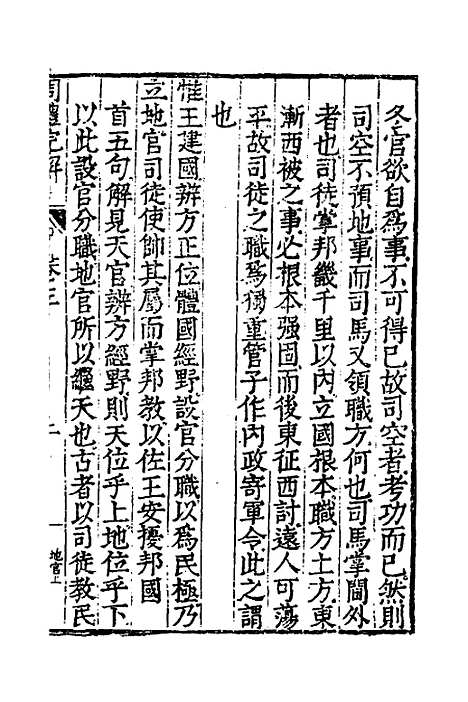 冬官欲自爲事不可得已故司空者考功而已然則
司空不預地事而司馬又領職方何也司馬掌閫外
者也司徒掌邦畿千里以內立國根本職方土方東
漸西被之事必根本强固而後東征西討遠人可蕩
平故司徒之職爲獨重管子作內政寄軍令此之謂
也
惟王建國辨方正位體國經野設官分職以爲民極乃
立地官司徒使帥其屬而掌邦教以佐王安擾邦國
首五句解見天官辨方經野則天位乎上地位乎下
以此設官分職地官所以繼天也古者以司徒教民
周禮完解
卷三
二
地官上